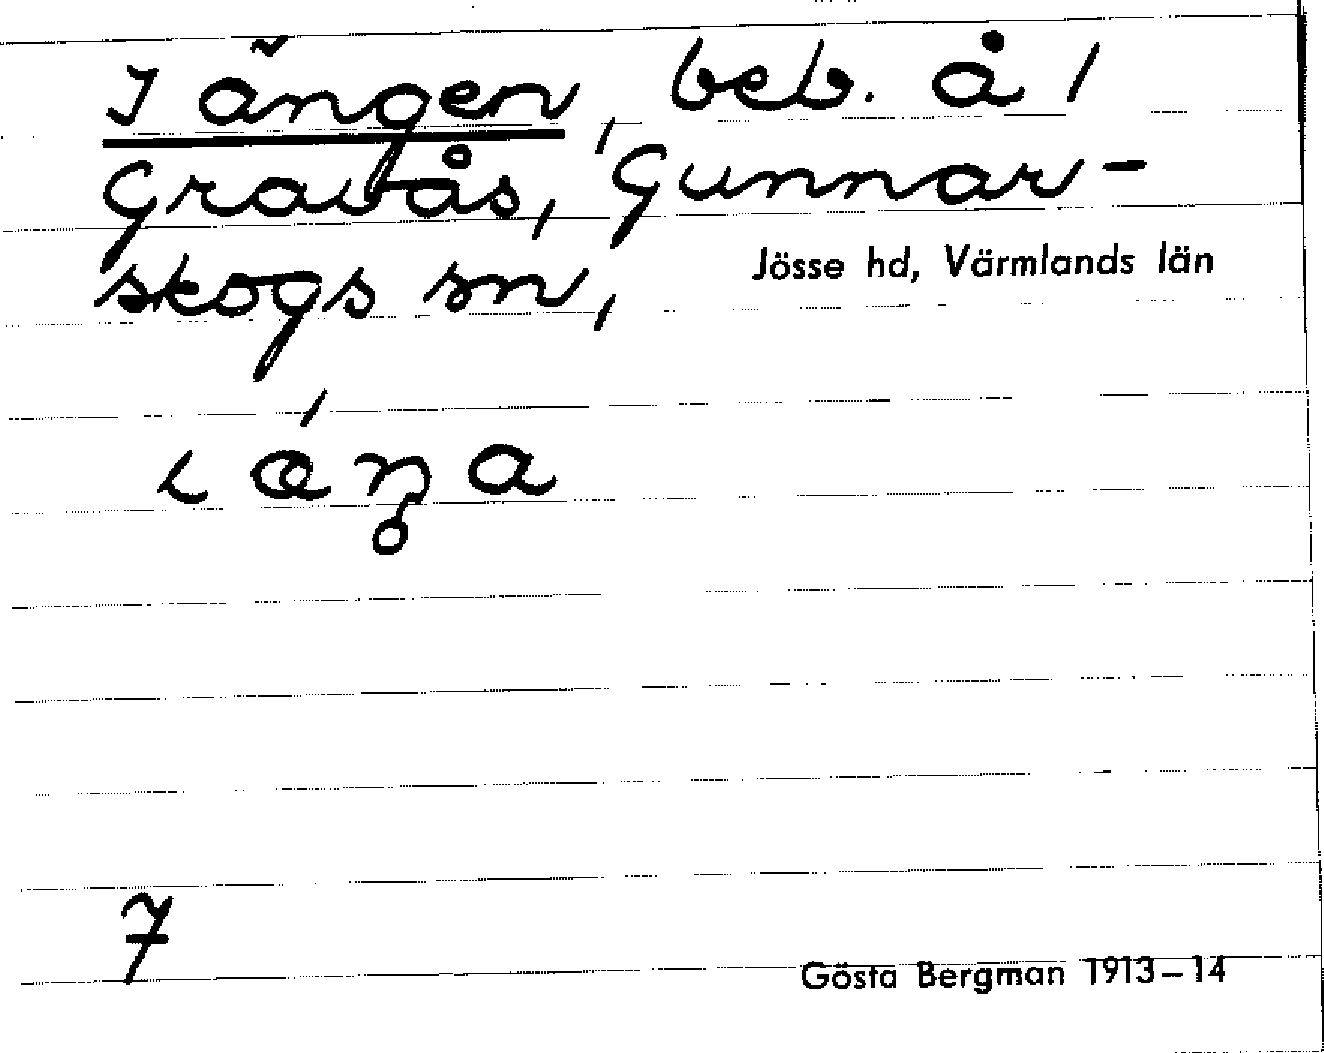 I ängen, beb. å 1
Gravås, Gunnar-
skogs sn,
Jösse hd, Värmlands län
7
Gösta Bergman 1913–14